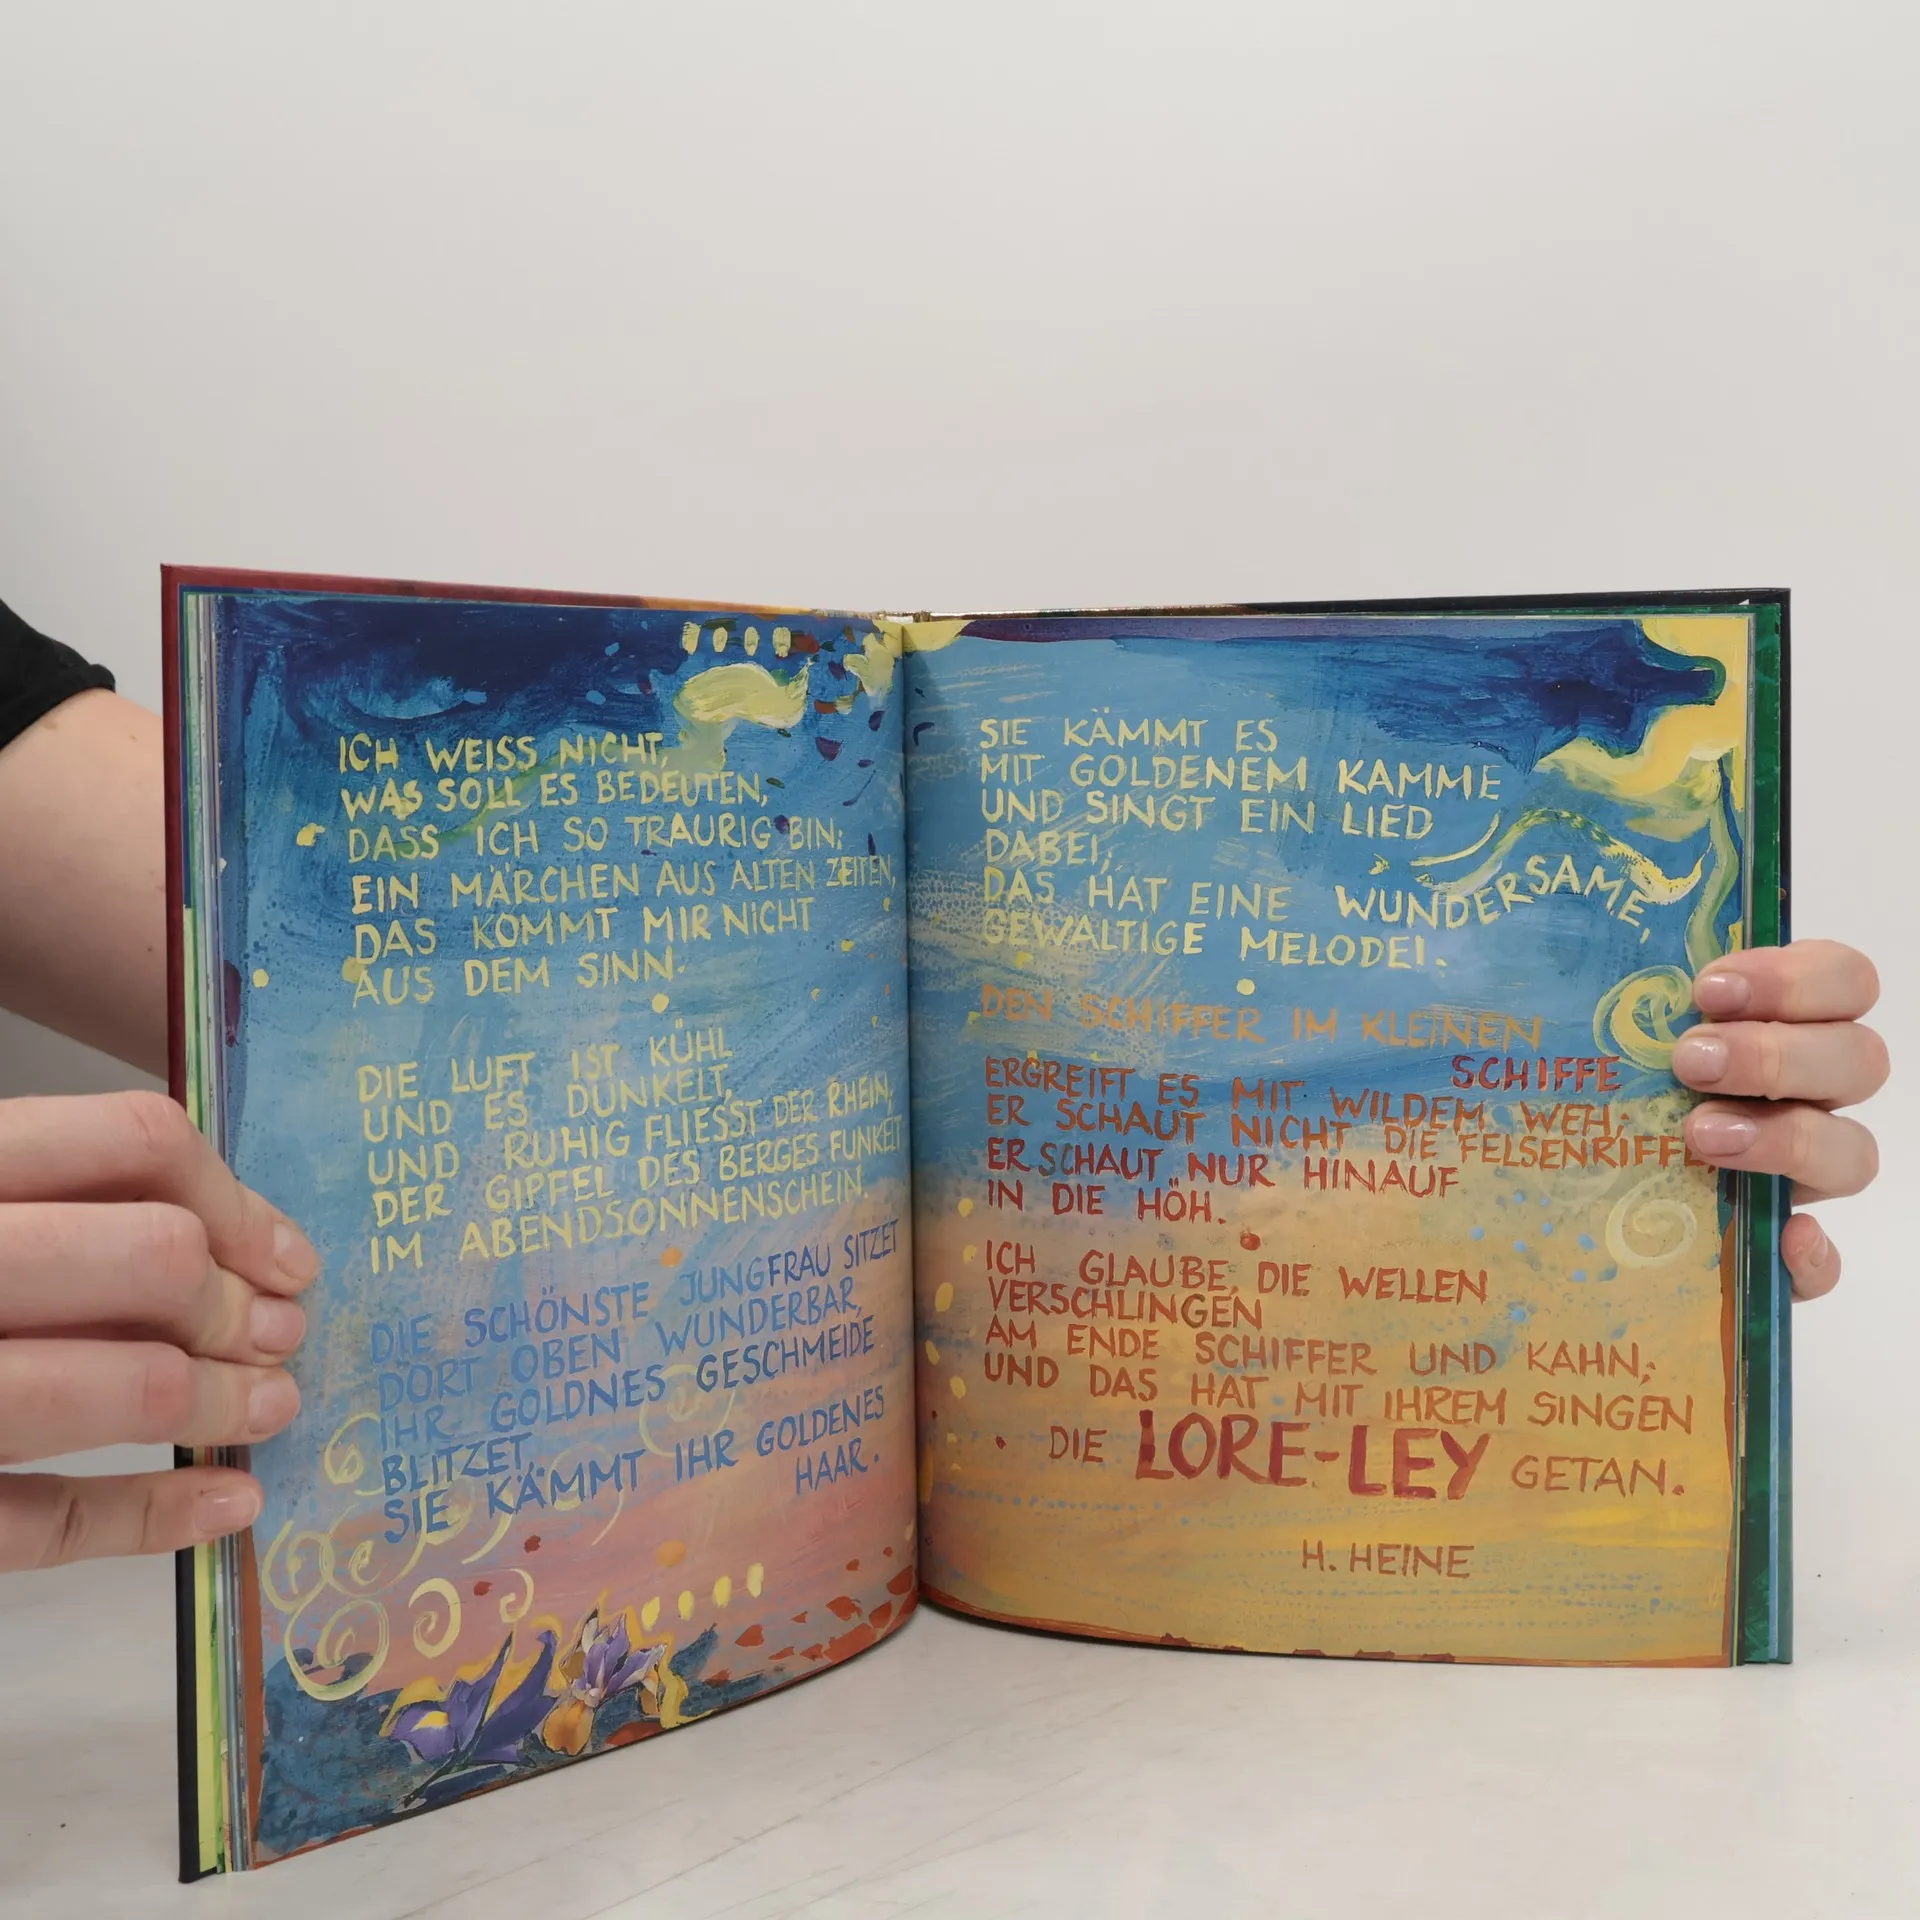 ICH WEISS NICHT,
WAS SOLL ES BEDEUTEN,
DASS ICH SO TRAURIG BIN;
EIN MÄRCHEN AUS ALTEN ZEITEN,
DAS KOMMT MIR NICHT
AUS DEM SINN.
DIE LUFT IST KÜHL
UND ES DUNKELT,
UND RUHIG FLIESST DER RHEIN;
DER GIPFEL DES BERGES FUNKELT
IM ABENDSONNENSCHEIN.
DIE SCHÖNSTE JUNGFRAU SITZET
DORT OBEN WUNDERBAR,
IHR GOLDNES GESCHMEIDE
BLITZET,
SIE KÄMMT IHR GOLDENES
HAAR.
SIE KÄMMT ES
MIT GOLDENEM KAMME
UND SINGT EIN LIED
DABEI;
DAS HAT EINE WUNDERSAME,
GEWALTIGE MELODEI.
DEN SCHIFFER IM KLEINEN
SCHIFFE
ERGREIFT ES MIT WILDEM WEH;
ER SCHAUT NICHT DIE FELSENRIFFE,
ER SCHAUT NUR HINAUF
IN DIE HÖH.
ICH GLAUBE, DIE WELLEN
VERSCHLINGEN
AM ENDE SCHIFFER UND KAHN;
UND DAS HAT MIT IHREM SINGEN
DIE LORE-LEY GETAN.
H. HEINE